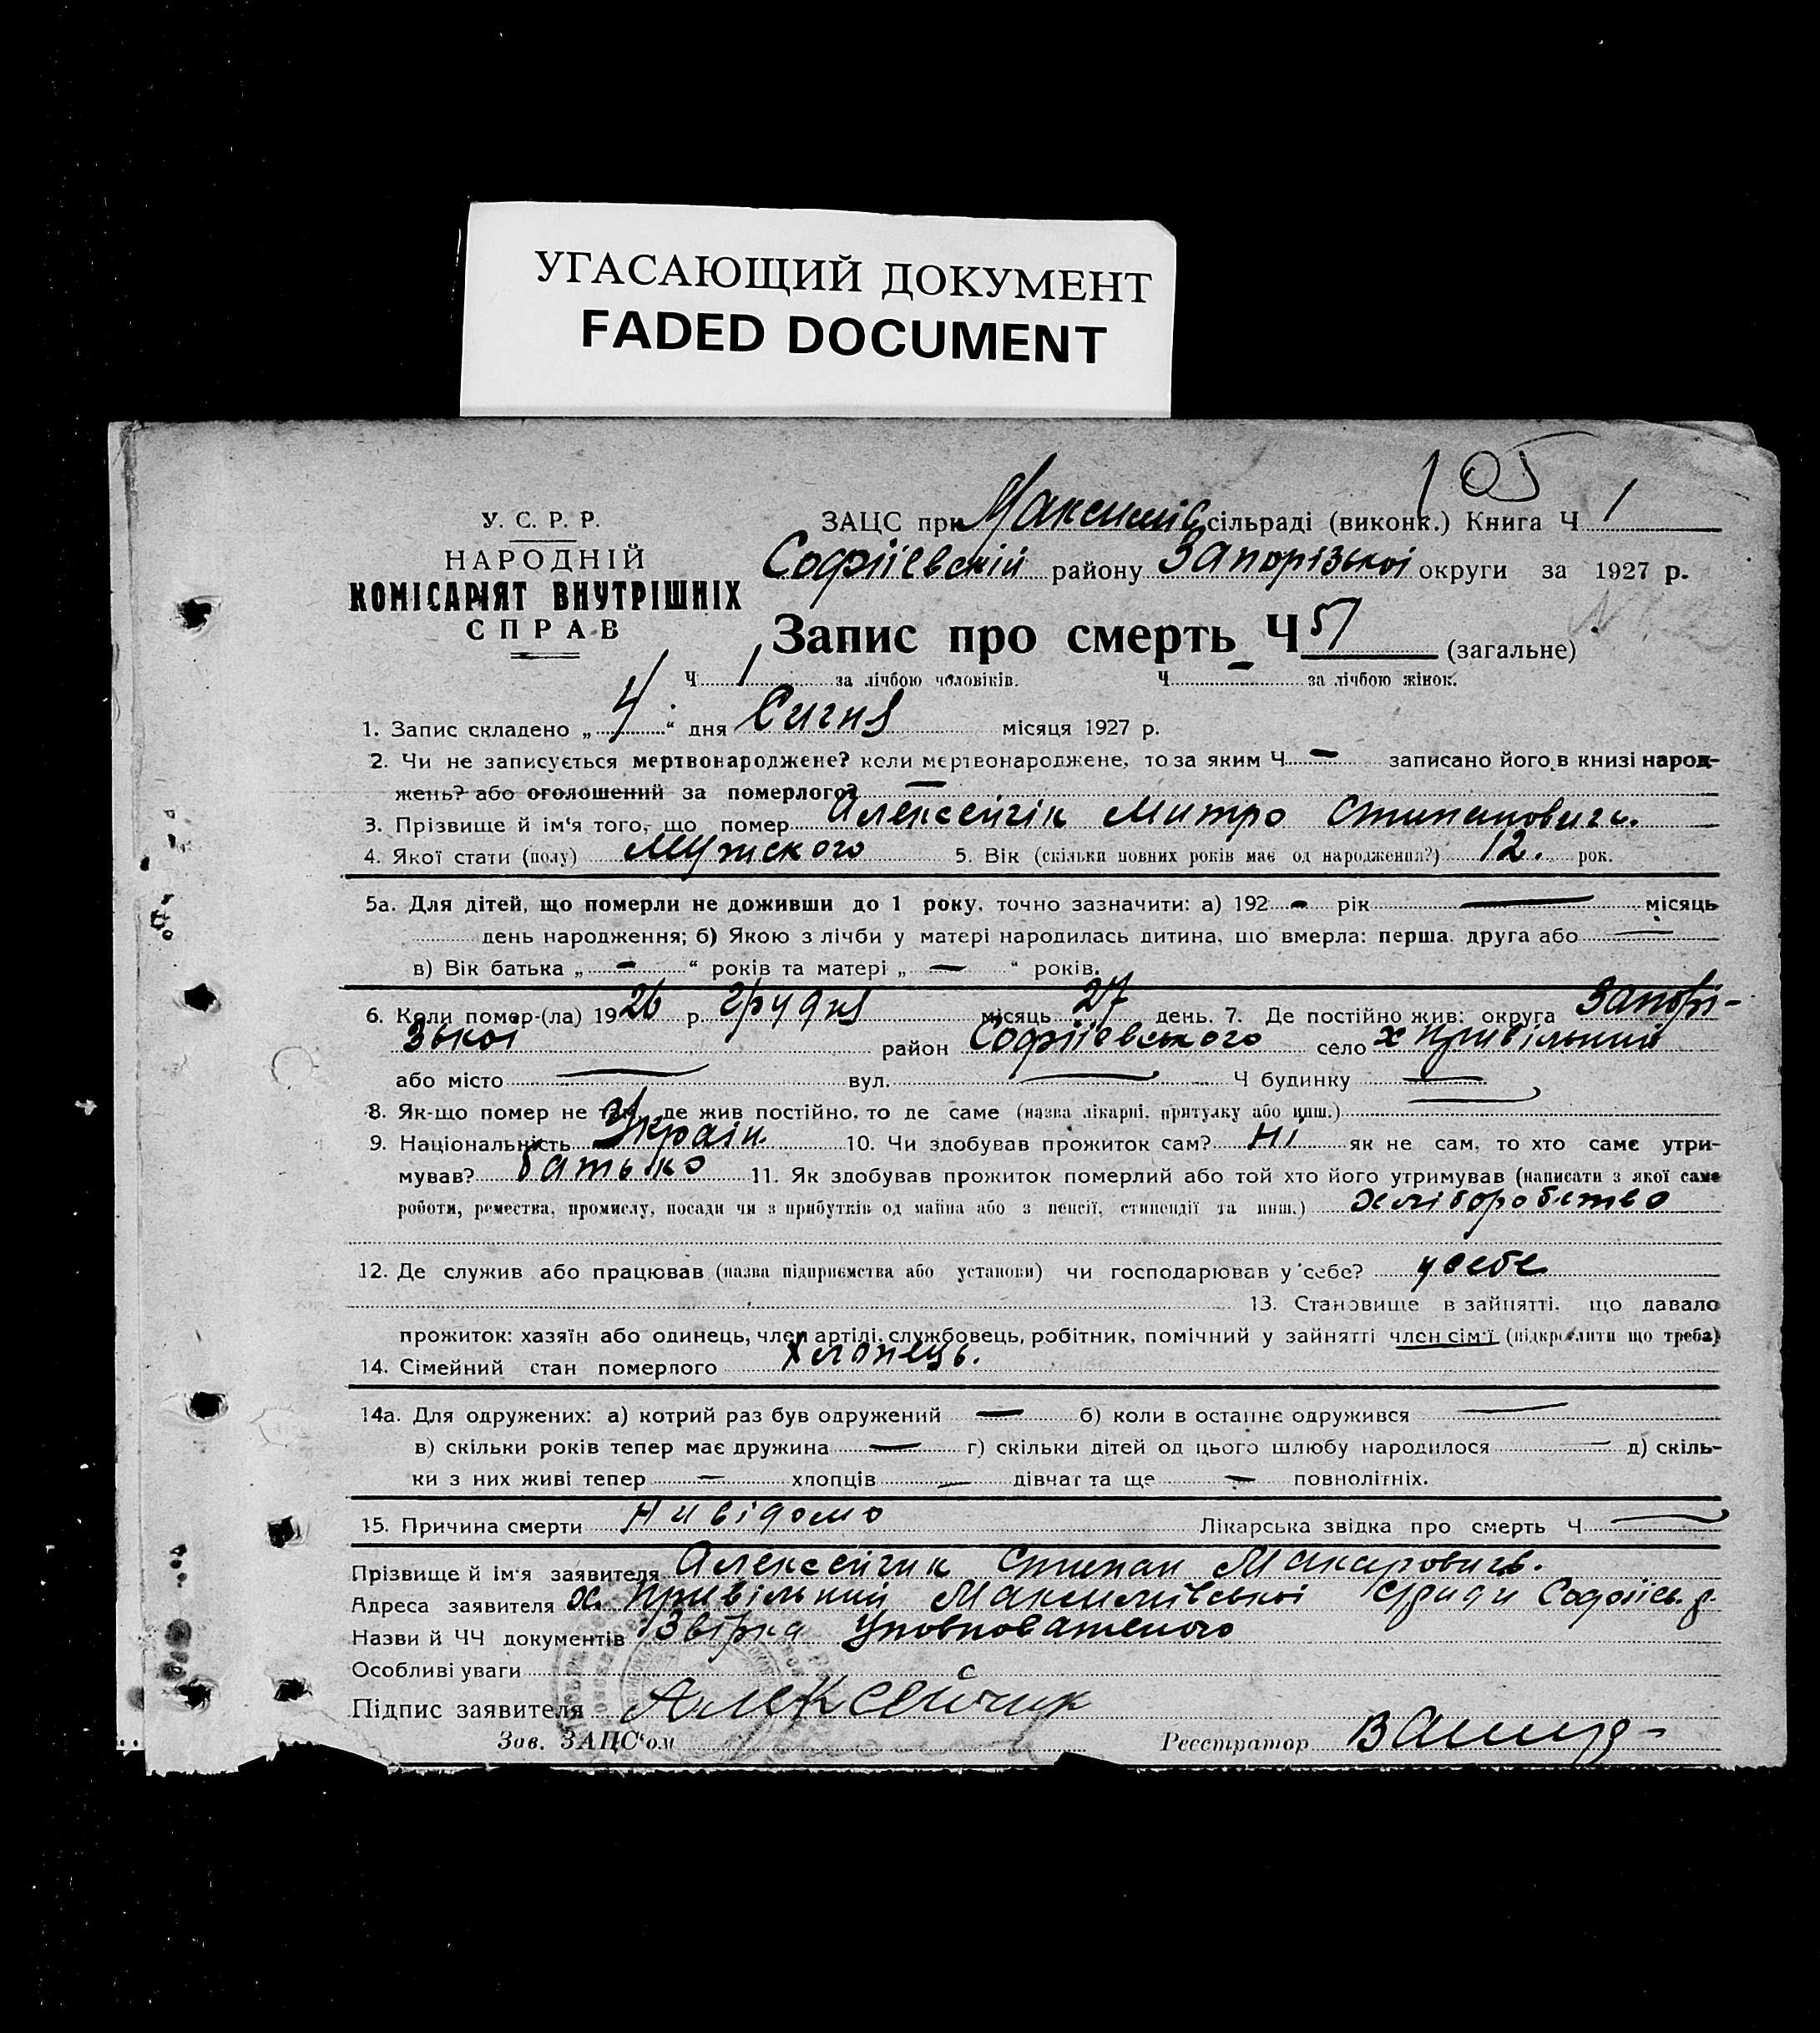 УГАСАЮЩИЙ ДОКУМЕНТ
FADED DOCUMENT
105
У. С. Р. Р.
НАРОДНІЙ
КОМІСАРІЯТ ВНУТРІШНІХ
СПРАВ
ЗАЦС при Максимів сільраді (виконк.) Книга Ч 1
Софіївскій району Запорізької округи за 1927 р.
Запис про смерть Ч 51 (загальне)
Ч 1 за лічбою чоловіків. Ч — за лічбою жінок.
1. Запис складено „ 4 “ дня Сичня місяця 1927 р.
2. Чи не записується мертвонароджене? коли мертвонароджене, то за яким Ч — записано його в книзі народ-
жень? або оголошений за померлого? —
3. Прізвище й ім'я того, що помер Алексейчік Митро Стипанович.
4. Якої стати (полу) Мужского 5. Вік (скільки повних років має од народження?) 12. рок.
5а. Для дітей, що померли не доживши до 1 року, точно зазначити: а) 192 — рік — місяць
день народження; б) Якою з лічби у матері народилась дитина, що вмерла: перша. друга або —
в) Вік батька „ — “ років та матері „ — “ років.
6. Коли помер-(ла) 1926 р. грудня місяць 27 день. 7. Де постійно жив: округа Запорі-
зької район Софіївського село х Привільний
або місто — вул. — Ч будинку —
8. Як-що помер не там, де жив постійно, то де саме (назва лікарні, притулку або инш.) —
9. Національність Україн. 10. Чи здобував прожиток сам? Ні як не сам, то хто саме утри-
мував? батько 11. Як здобував прожиток померлий або той хто його утримував (написати з якої саме
роботи, ремества, промислу, посади чи з прибутків од майна або з пенсії, стипендії та инш.) хліборобство
12. Де служив або працював (назва підприємства або установи) чи господарював у себе? у себе
13. Становище в зайнятті, що давало
прожиток: хазяїн або одинець, член артілі, службовець, робітник, помічний у зайнятті член сім'ї (підкреслити що треба)
14. Сімейний стан померлого хлопець.
14а. Для одружених: а) котрий раз був одружений — б) коли в останнє одружився —
в) скільки років тепер має дружина — г) скільки дітей од цього шлюбу народилося — д) скіль-
ки з них живі тепер — хлопців — дівчат та ще — повнолітніх.
15. Причина смерти Нивідомо Лікарська звідка про смерть Ч —
Прізвище й ім'я заявителя Алексейчик Стипан Макарович.
Адреса заявителя х. Привільний Максимівської с/ради Софіїв. р.
Назви й ЧЧ документів Звірка Уповноваженого
Особливі уваги
Підпис заявителя Алексейчик
Зав. ЗАЦС'ом Реєстратор